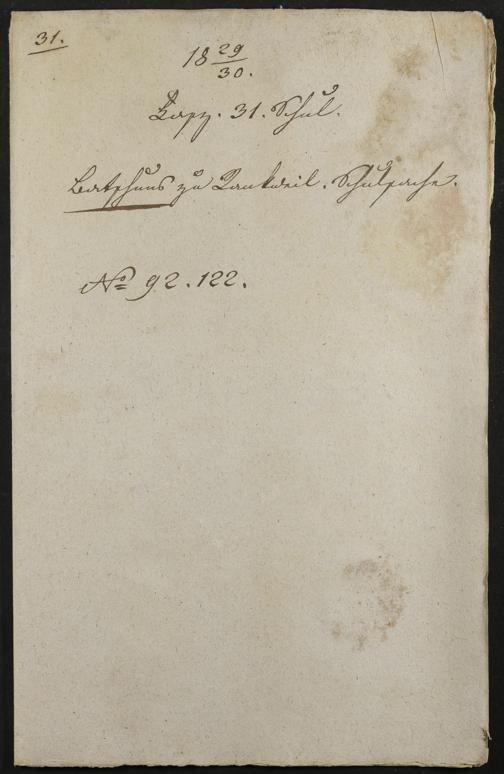 31.
18 29/30.
Fasz. 31. Schul.
Batschuns zu Rankweil. Schulsache.
No 92. 122.